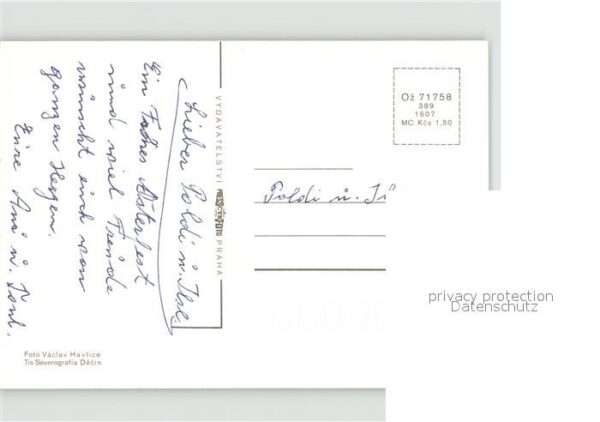 Lieber Poldi u. Ilse.
Ein Frohes Osterfest
und viel Freude
wünscht euch von
ganzen Herzen.
Eure Ani u. Toni.
VYDAVATELSTVÍ PRESSFOTO PRAHA
Ož 71758
389
1607
MC Kčs 1,50
Poldi u. Il
privacy protection
Datenschutz
Foto Václav Havlice
Tis Severografia Děčín